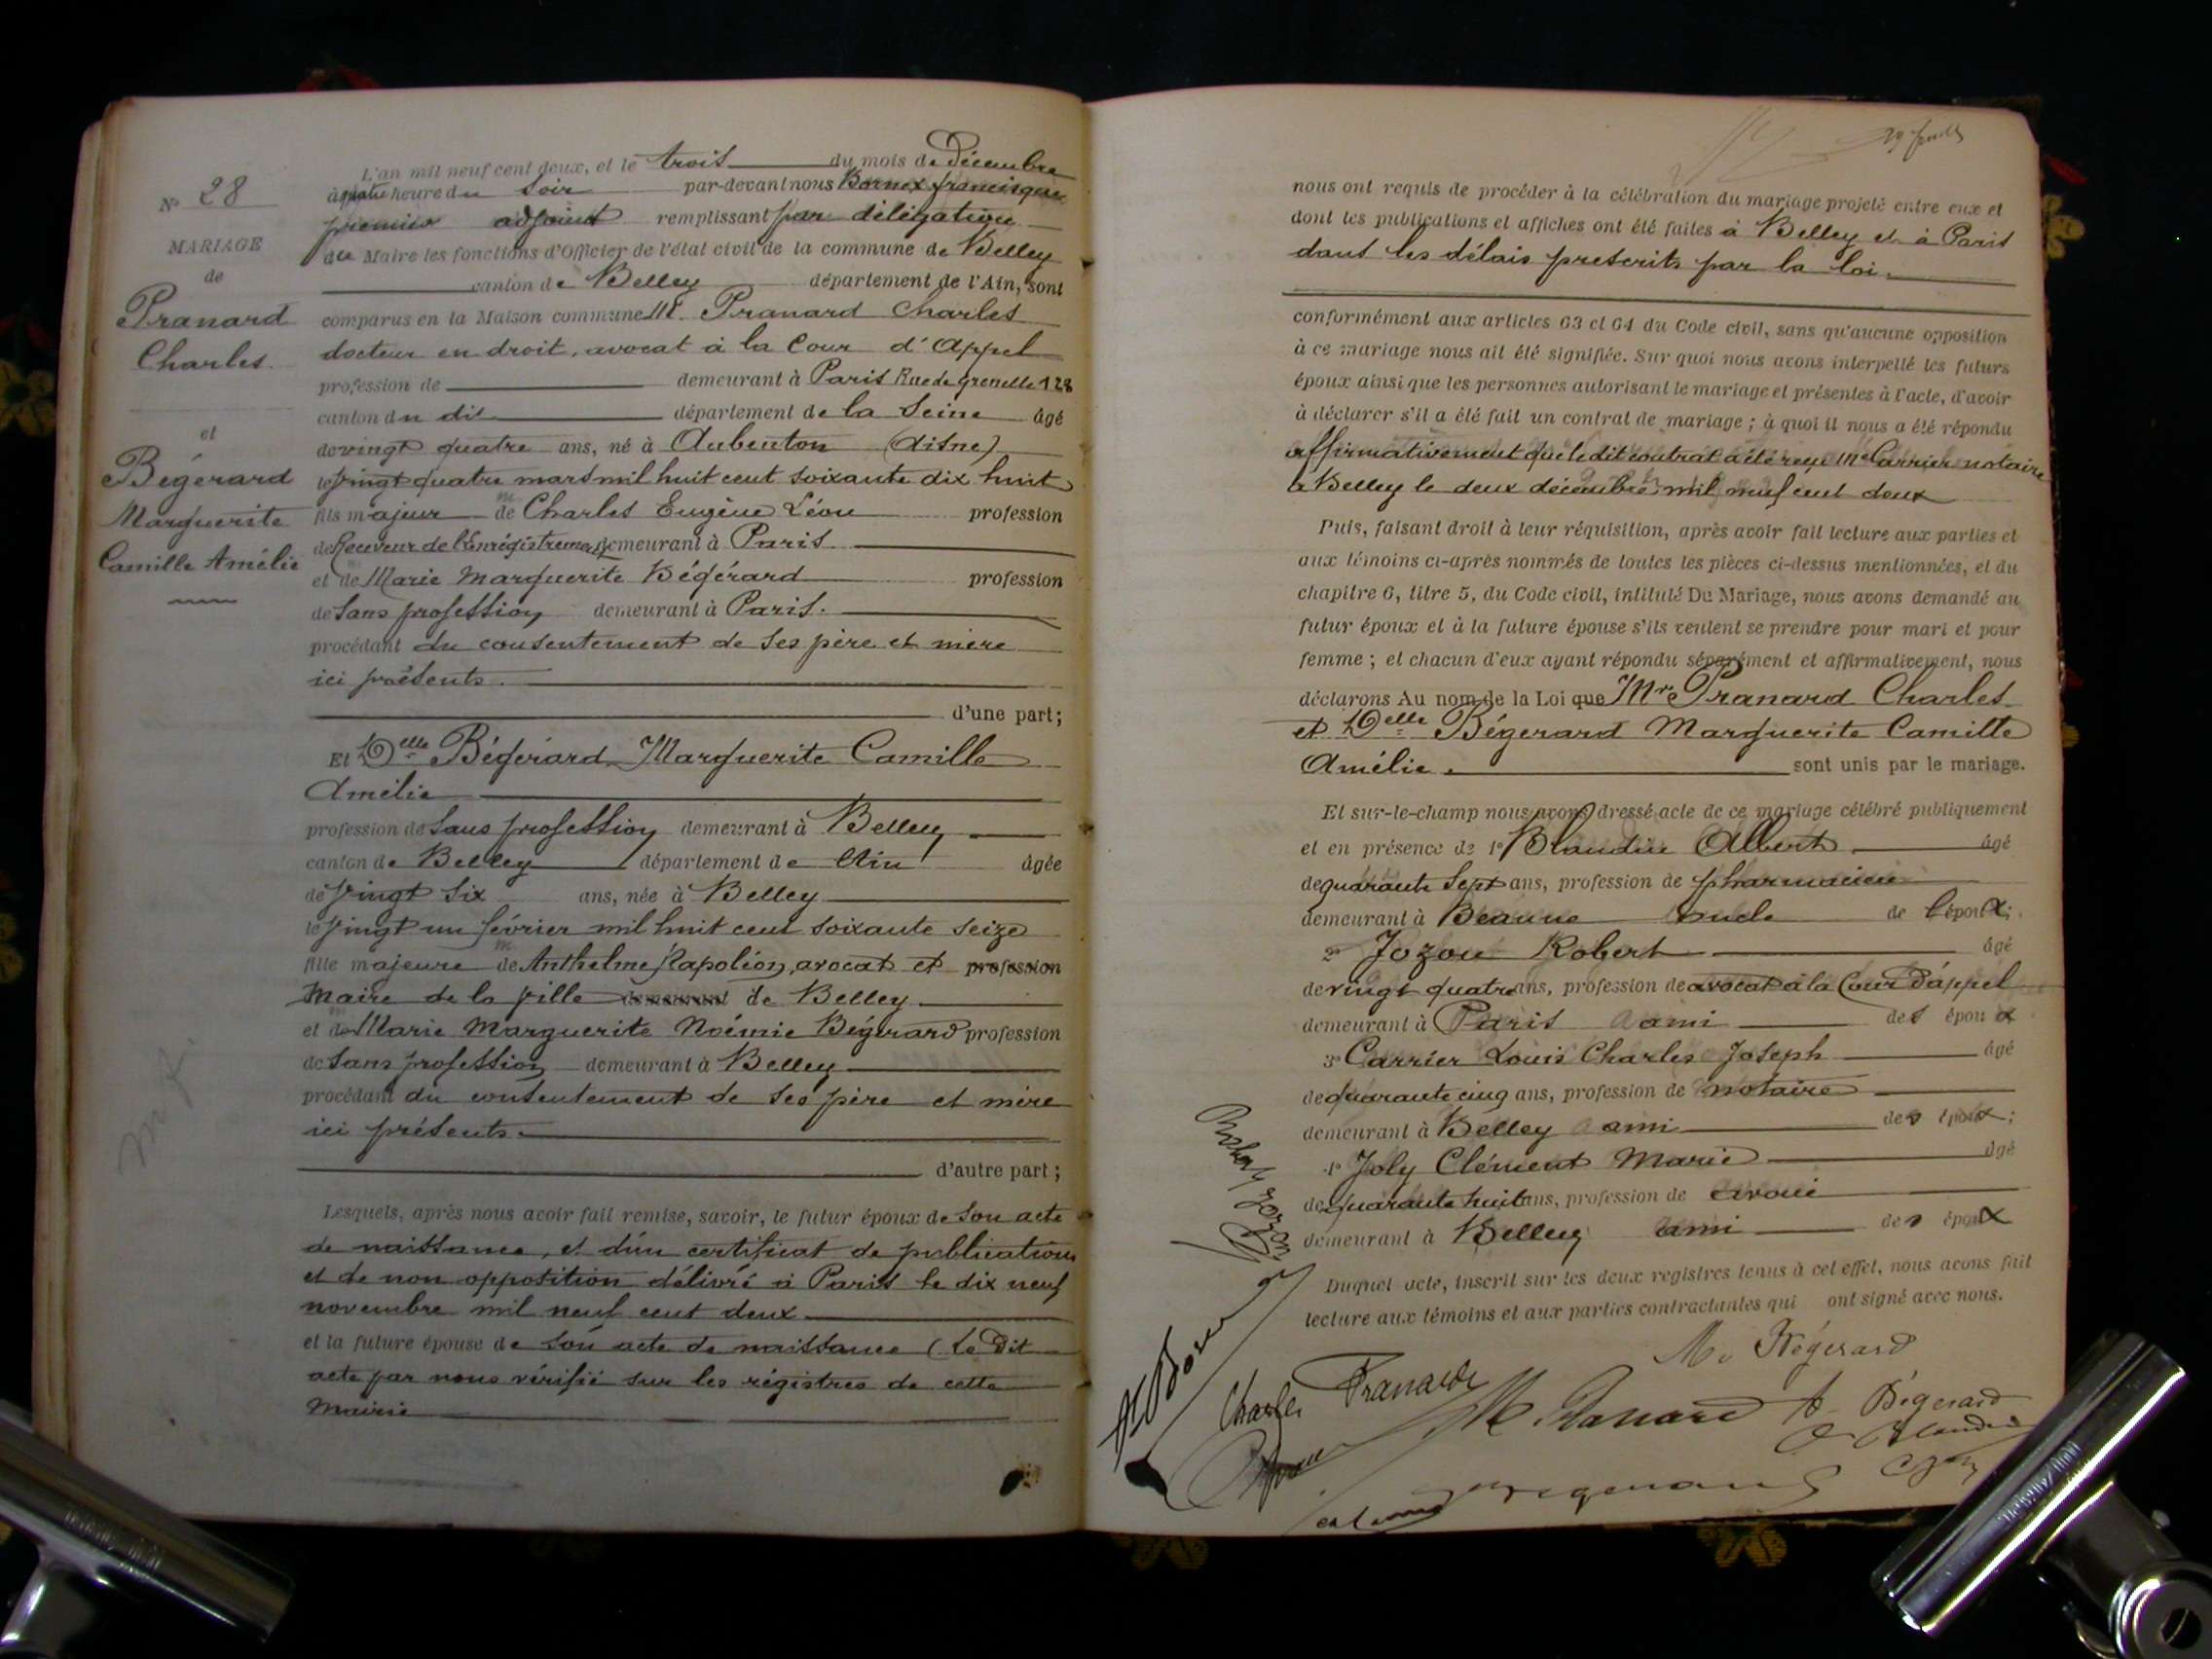 N° 28
MARIAGE
de
Pranard
Charles.
et
Bégérard
Marguerite
Camille Amélie
L'an mil neuf cent deux, et le trois du mois de Décembre
à quatre heure du Soir par-devant nous Bornex francisque
premier adjoint remplissant par délégation
du Maire les fonctions d'Officier de l'état civil de la commune de Belley
canton de Belley département de l'Ain, sont
comparus en la Maison commune M. Pranard Charles
docteur en droit, avocat à la Cour d'Appel
profession de demeurant à Paris Rue de grenelle 128
canton du dit département de la Seine âgé
de vingt quatre ans, né à Aubenton (Aisne)
le vingt quatre mars mil huit cent soixante dix huit
fils majeur de Charles Eugène Léon profession
de Receveur de l'Enrégistrement demeurant à Paris
et de Marie Marguerite Bégérard profession
de Sans profession demeurant à Paris.
procédant du consentement de ses père et mère
ici présents.
d'une part;
Et Delle Bégérard Marguerite Camille
Amélie
profession de Sans profession demeurant à Belley
canton de Belley département de l'Ain âgée
de vingt six ans, née à Belley
le vingt un février mil huit cent soixante seize
fille majeure de Anthelme Napoléon, avocat et profession
Maire de la ville demeurant de Belley
et de Marie Marguerite Noémie Bégérard profession
de Sans profession demeurant à Belley
procédant du consentement de ses père et mère
ici présents.
d'autre part;
Lesquels, après nous avoir fait remise, savoir, le futur époux de son acte
de naissance, et d'un certificat de publications
et de non opposition délivré à Paris le dix neuf
novembre mil neuf cent deux
et la future épouse de son acte de naissance (le Dit
acte par nous vérifié sur les régistres de cette
Mairie
nous ont requis de procéder à la célébration du mariage projeté entre eux et
dont les publications et affiches ont été faites à Belley et à Paris
dans les délais prescrits par la loi.
conformément aux articles 63 et 64 du Code civil, sans qu'aucune opposition
à ce mariage nous ait été signifiée. Sur quoi nous avons interpellé les futurs
époux ainsi que les personnes autorisant le mariage et présentes à l'acte, d'avoir
à déclarer s'il a été fait un contrat de mariage; à quoi il nous a été répondu
affirmativement que le dit contrat a été reçu Me Carrier notaire
à Belley le deux décembre mil neuf cent deux
Puis, faisant droit à leur réquisition, après avoir fait lecture aux parties et
aux témoins ci-après nommés de toutes les pièces ci-dessus mentionnées, et du
chapitre 6, titre 5, du Code civil, intitulé Du Mariage, nous avons demandé au
futur époux et à la future épouse s'ils veulent se prendre pour mari et pour
femme; et chacun d'eux ayant répondu séparément et affirmativement, nous
déclarons Au nom de la Loi que Mr Pranard Charles
et Delle Bégerard Marguerite Camille
Amélie. sont unis par le mariage.
Et sur-le-champ nous avons dressé acte de ce mariage célébré publiquement
et en présence de 1° Blandin Albert âgé
de quarante Sept ans, profession de pharmacien
demeurant à Beaune oncle de l'époux;
2° Jozon Robert âgé
de vingt quatre ans, profession de avocat à la Cour d'appel
demeurant à Paris ami des époux
3° Carrier Louis Charles Joseph âgé
de quarante cinq ans, profession de notaire
demeurant à Belley ami des époux;
4° Joly Clément Marie âgé
de quarante huit ans, profession de avoué
demeurant à Belley ami des époux
Duquel acte, inscrit sur les deux registres tenus à cet effet, nous avons fait
lecture aux témoins et aux parties contractantes qui ont signé avec nous.
Robert Jozon
M. Bégerard
Charles Pranard
M. Pranard
A. Bégerard
A. Blandin